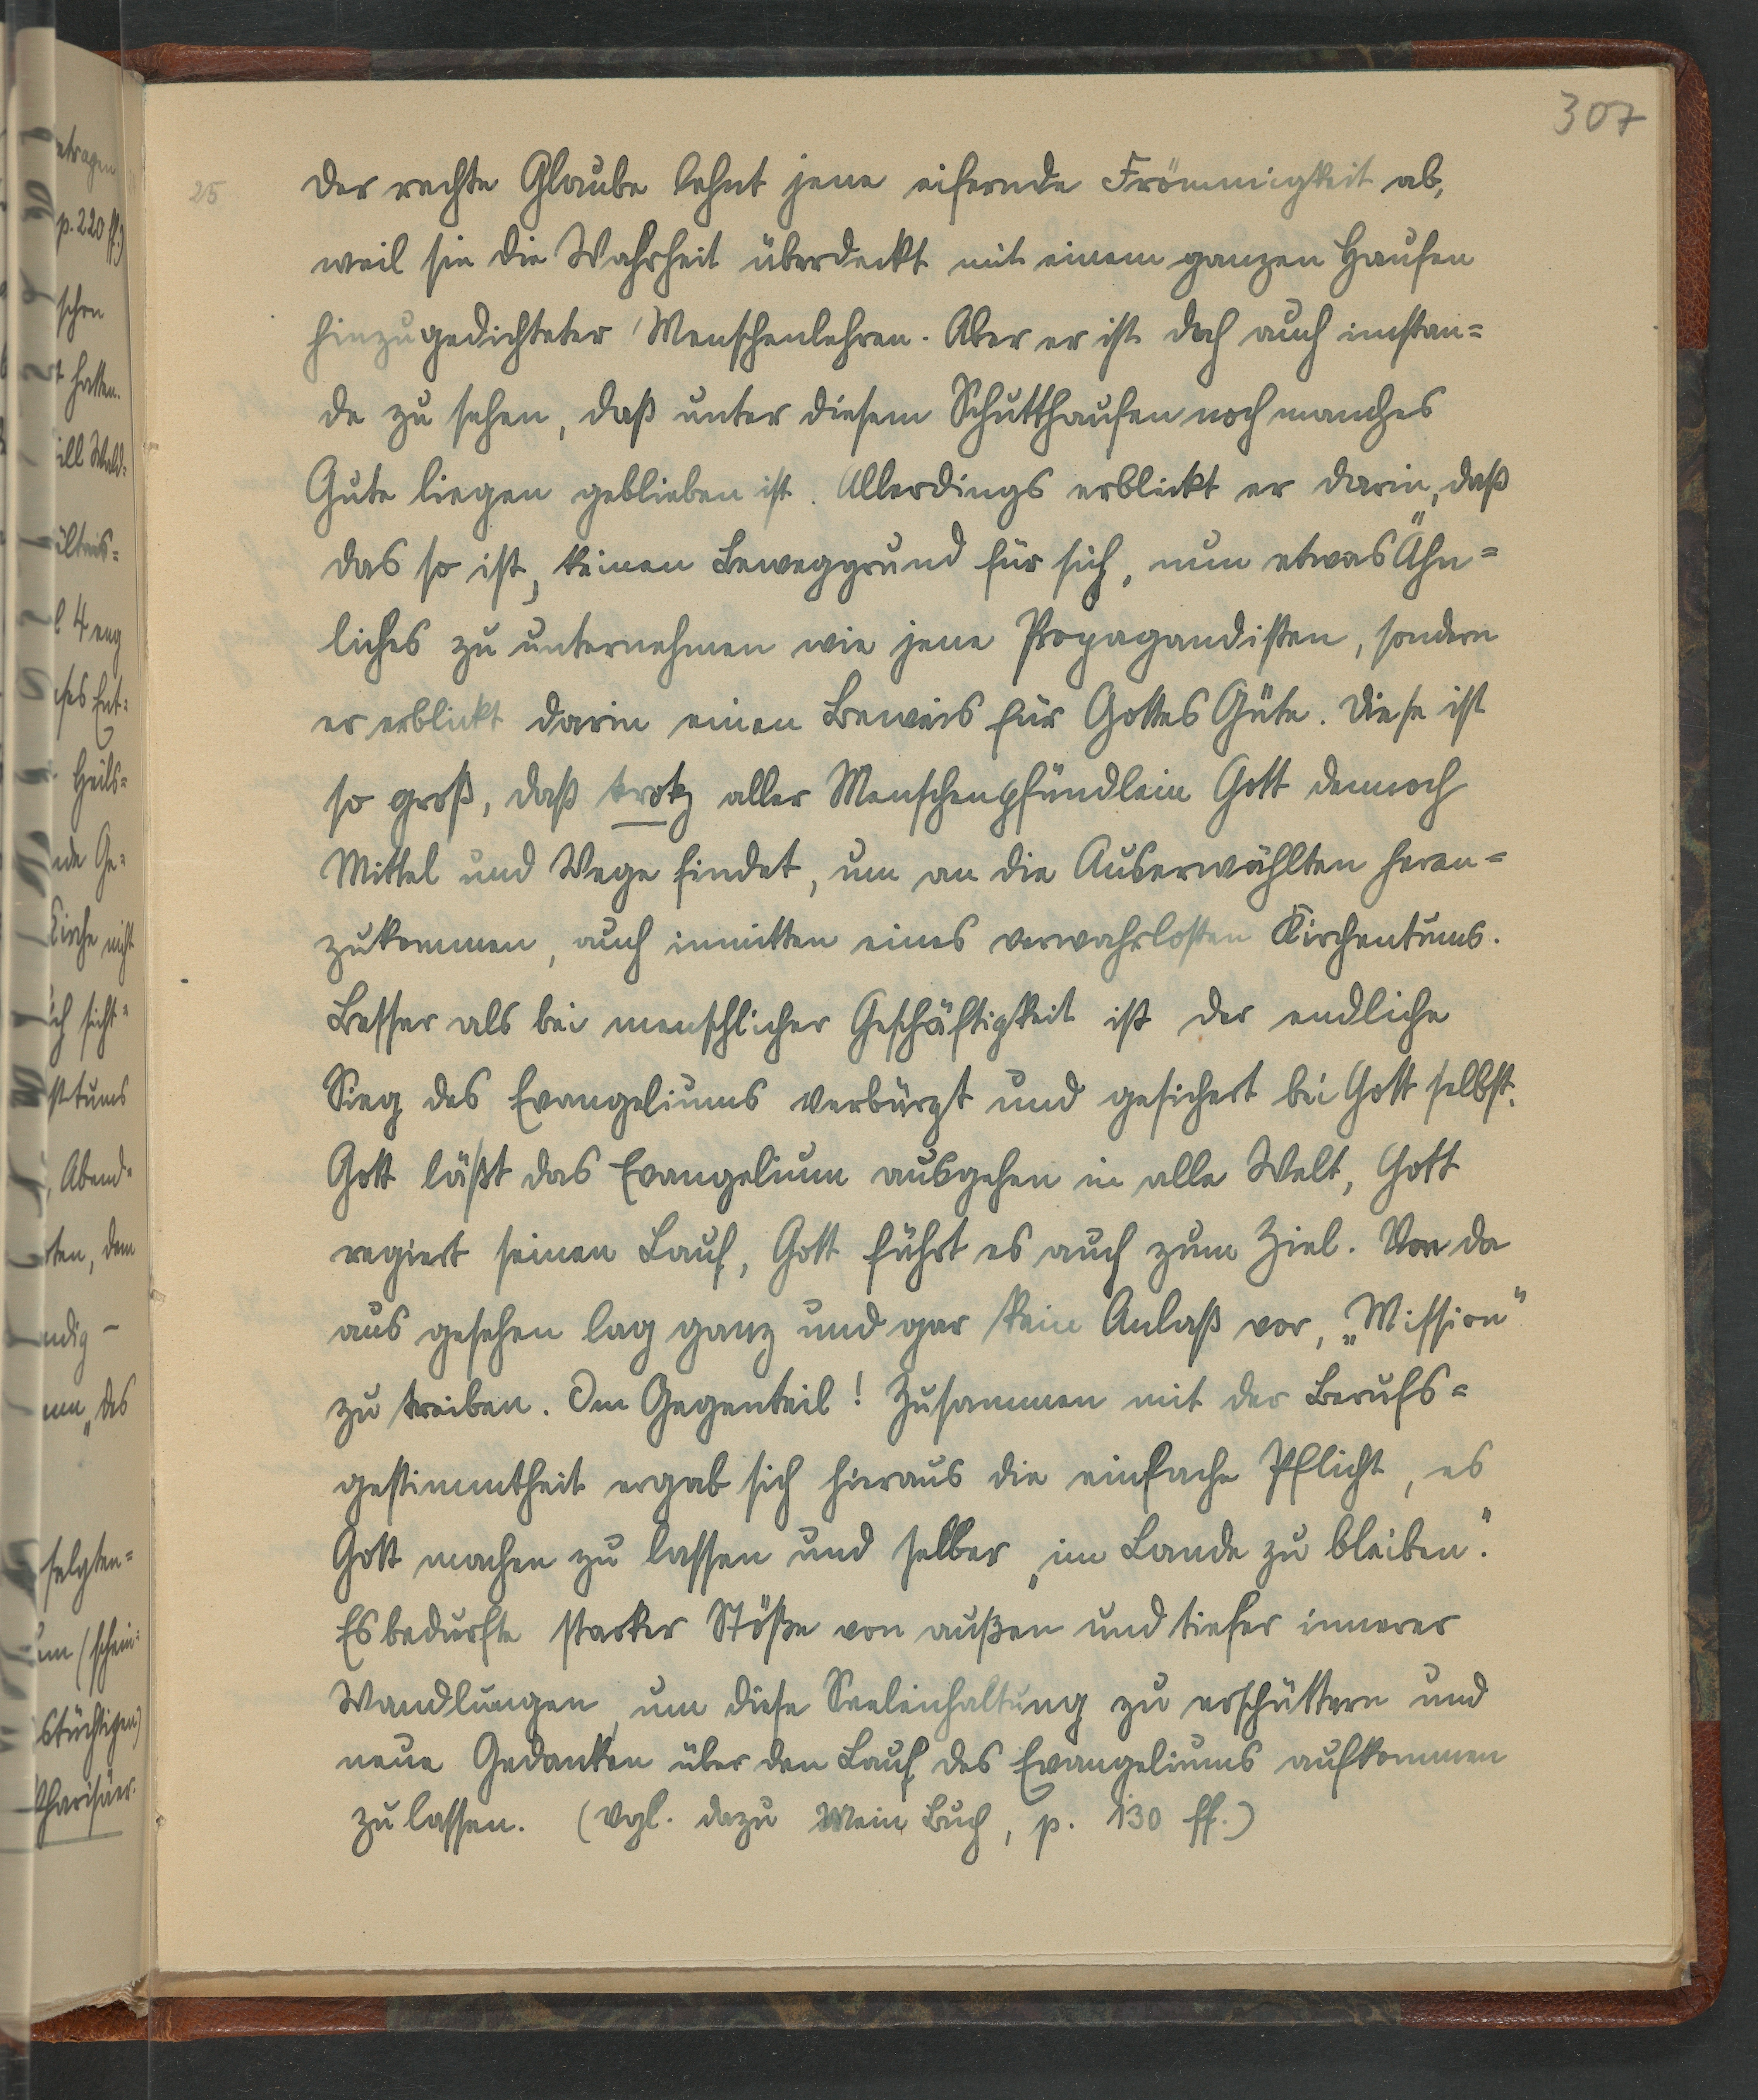 307
25
Der rechte Glaube lehnt jene eifernde Frömmigkeit ab,
weil sie die Wahrheit überdeckt mit einem ganzen Haufen
hinzugedichteter Menschenlehren. Aber er ist doch auch imstan=
de zu sehen, daß unter diesem Schutthaufen noch manches
Gute liegen geblieben ist. Allerdings erblickt er darin, daß
das so ist, keinen Beweggrund für sich, nun etwas Ähn=
liches zu unternehmen wie jene Propagandisten, sondern
er erblickt darin einen Beweis für Gottes Güte. Diese ist
so groß, daß trotz aller Menschenpfündlein Gott dennoch
Mittel und Wege findet, um an die Auserwählten heran=
zukommen, auch inmitten eines verwahrlosten Kirchentums.
Besser als bei menschlicher Geschäftigkeit ist der endliche
Sieg des Evangeliums verbürgt und gesichert bei Gott selbst.
Gott läßt das Evangelium ausgehen in alle Welt, Gott
regiert seinen Lauf, Gott führt es auch zum Ziel. Von da
aus gesehen lag ganz und gar kein Anlaß vor, „Mission"
zu treiben. Im Gegenteil! Zusammen mit der Berufs=
gestimmtheit ergab sich hieraus die einfache Pflicht, es
Gott machen zu lassen und selber „im Lande zu bleiben".
Es bedurfte starker Stöße von außen und tiefer innerer
Wandlungen, um diese Seelenhaltung zu erschüttern und
neue Gedanken über den Lauf des Evangeliums aufkommen
zu lassen. (Vgl. dazu Mein Buch, p. 130 ff.)